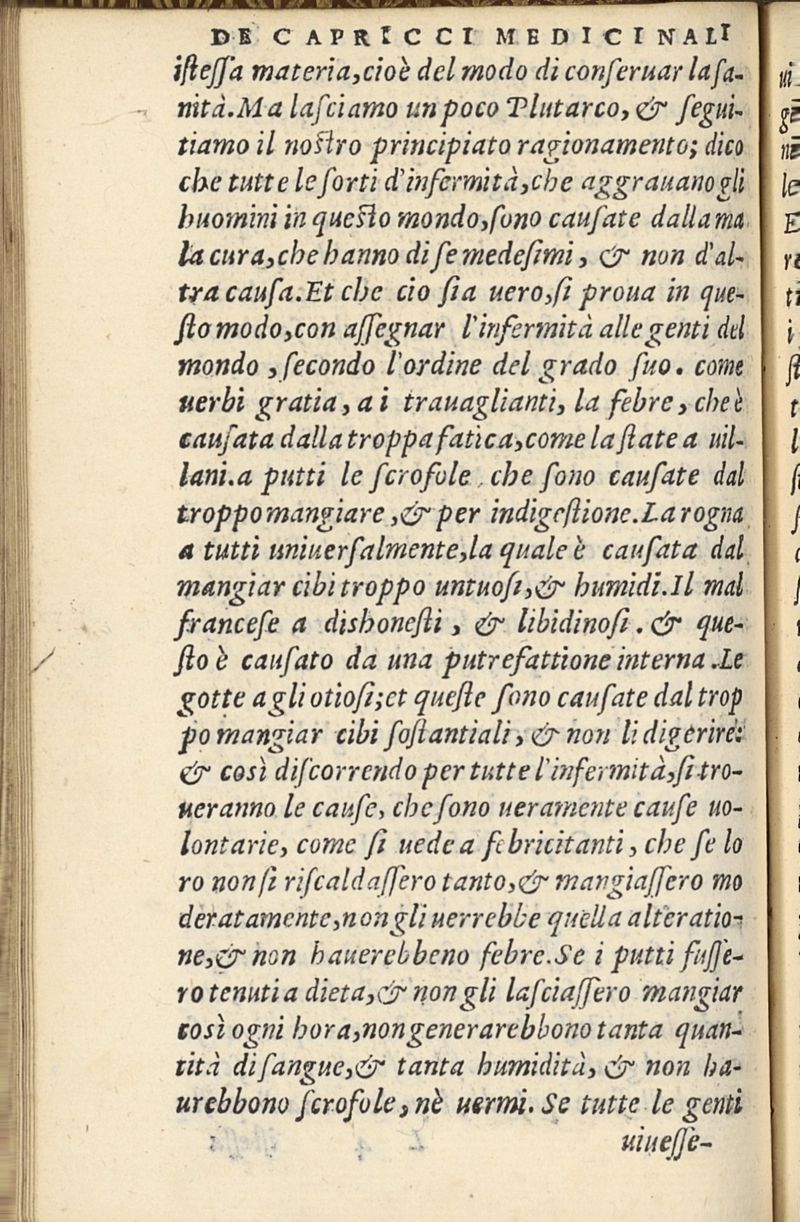 DE CAPRICCI MEDICINALI
isteſſa materia,cioè del modo di conſeruar la ſa-
nità.Ma laſciamo un poco Plutarco, & ſegui-
tiamo il nostro principiato ragionamento; dico
che tutte le ſorti d'infermità,che aggrauano gli
huomini in questo mondo,ſono cauſate dalla ma
la cura,che hanno di ſe medeſimi, & non d'al-
tra cauſa.Et che cio ſia uero,ſi proua in que-
ſto modo,con aſſegnar l'infermità alle genti del
mondo ,ſecondo l'ordine del grado ſuo. come
uerbi gratia, a i trauaglianti, la febre, che è
cauſata dalla troppa fatica,come la ſtate a uil-
lani.a putti le ſcrofole, che ſono cauſate dal
troppo mangiare ,& per indigeſtione.La rogna
a tutti uniuerſalmente,la quale è cauſata dal
mangiar cibi troppo untuoſi,& humidi.Il mal
franceſe a dishoneſti, & libidinoſi. & que-
ſto è cauſato da una putrefattione interna.Le
gotte a gli otioſi;et queſte ſono cauſate dal trop
po mangiar cibi ſoſtantiali, & non li digerire:
& così diſcorrendo per tutte l'infermità,ſi tro-
ueranno le cauſe, che ſono ueramente cauſe uo-
lontarie, come ſi uede a febricitanti, che ſe lo
ro non ſi riſcaldaſſero tanto,& mangiaſſero mo
deratamente,non gli uerrebbe quella alteratio-
ne,& non hauerebbeno febre.Se i putti fuſſe-
ro tenuti a dieta,& non gli laſciaſſero mangiar
così ogni hora,non generarebbono tanta quan-
tità di ſangue,& tanta humidità, & non ha-
urebbono ſcrofole, nè uermi. Se tutte le genti
uiueſſe-